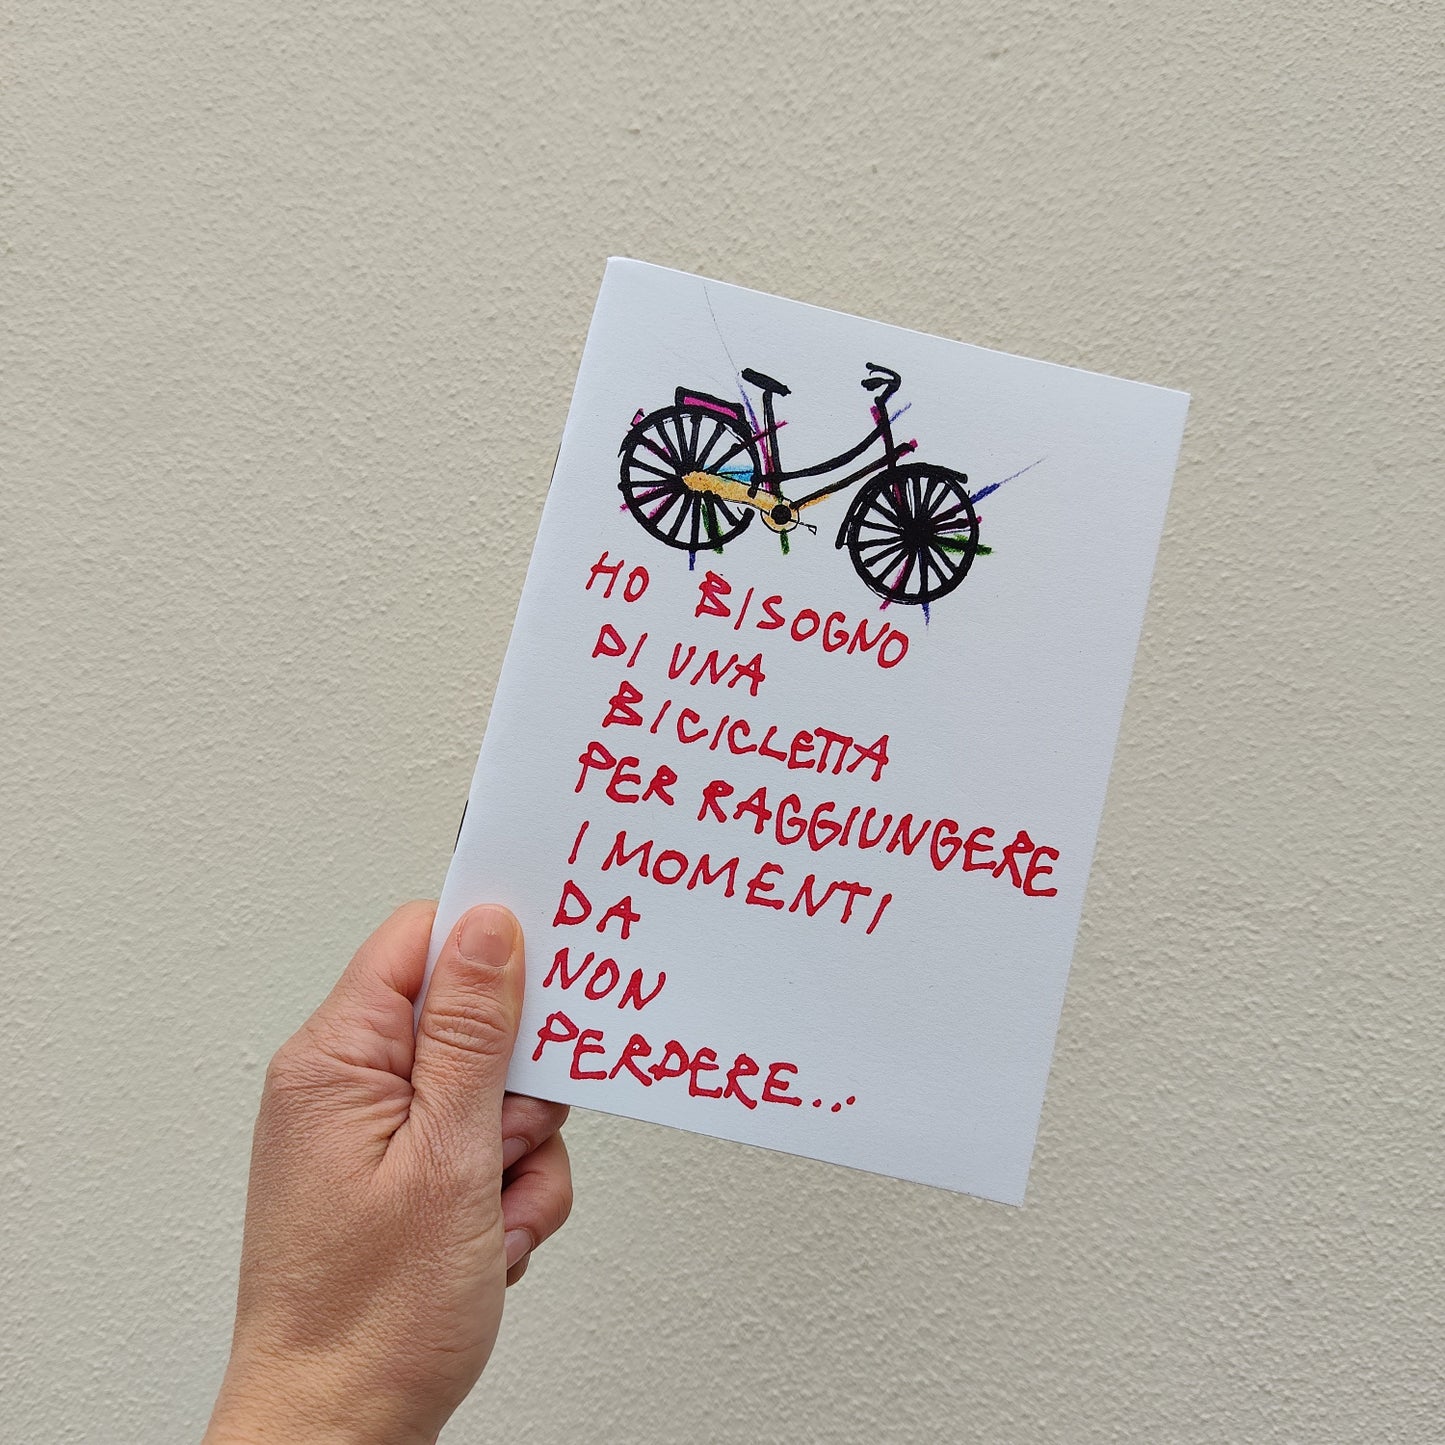 HO BISOGNO
DI UNA
BICICLETTA
PER RAGGIUNGERE
I MOMENTI
DA
NON
PERDERE...